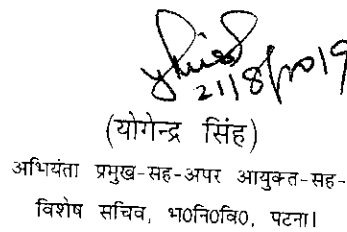 21/8/2019
(योगेन्द्र सिंह)
अभियंता प्रमुख-सह-अपर आयुक्त-सह-
विशेष सचिव, भ0नि0वि0, पटना।